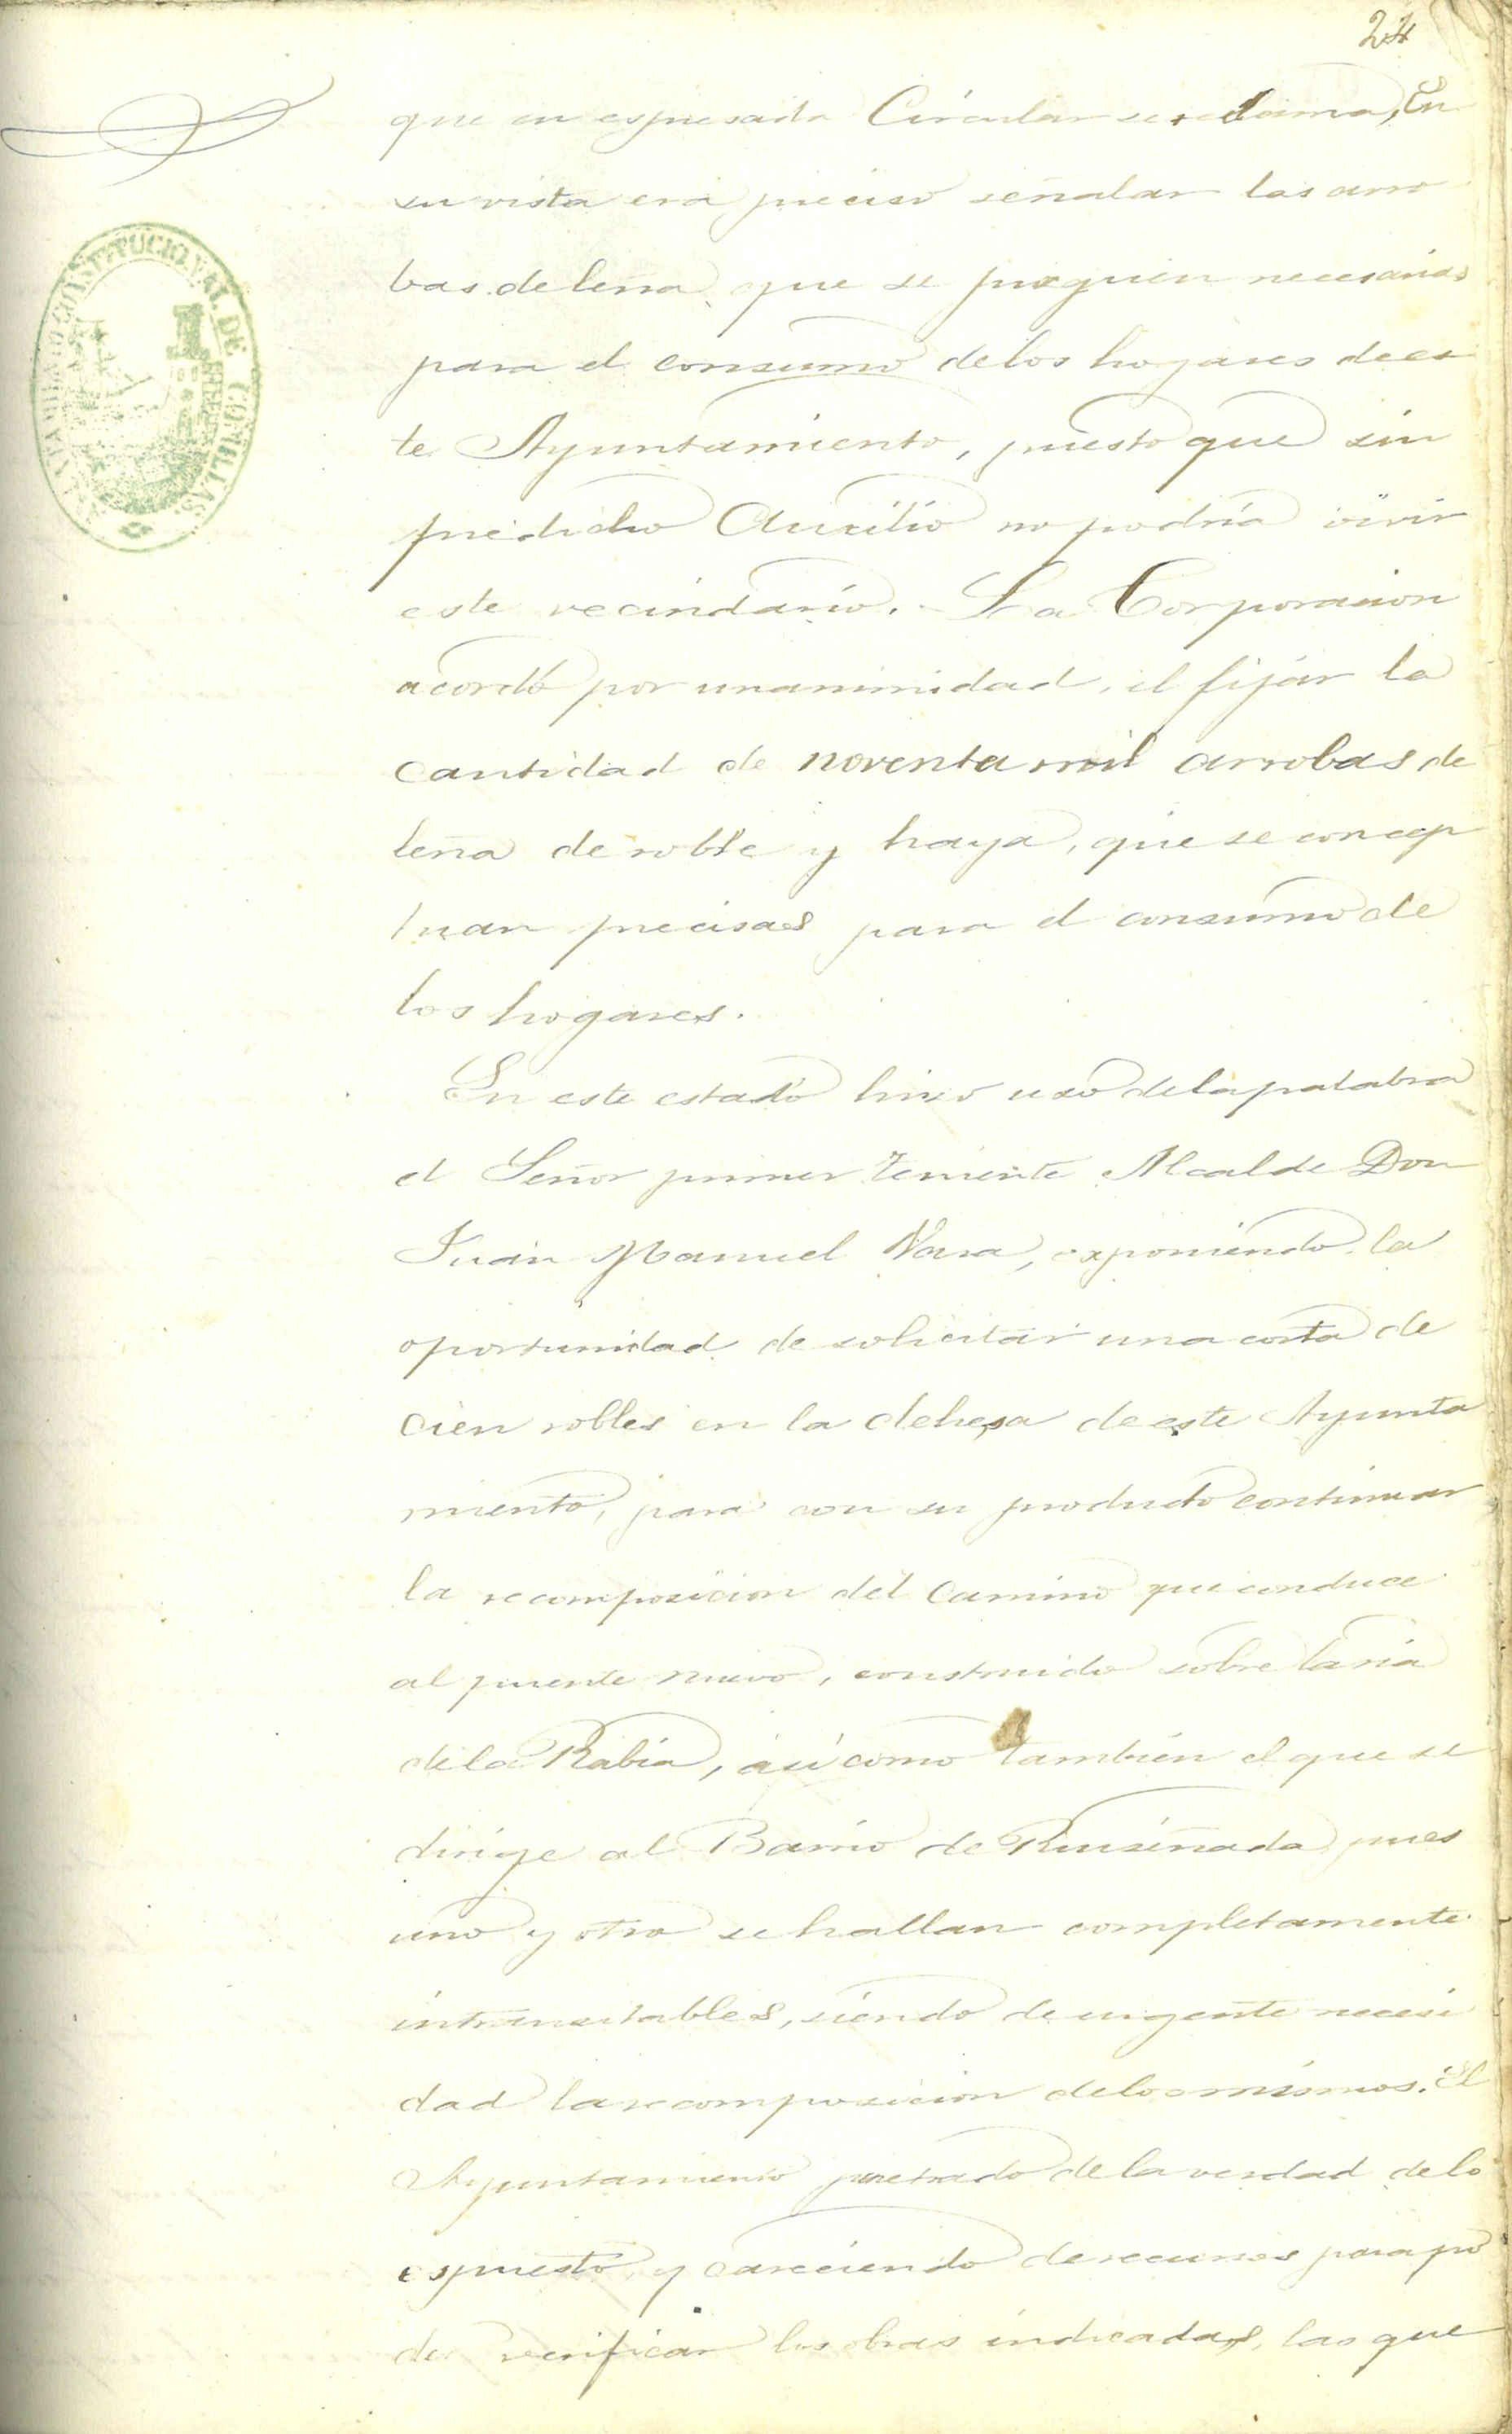 24
que en espresada Circular se reclama, En
su vista era preciso señalar las arro
bas de leña que se juzguen necesarias
para el consumo de los hogares de es
te Ayuntamiento, puesto que sin
predicho Aucilio no podria vivir
este vecindario. La Corporacion
acordó por unanimidad, el fijar la
cantidad de noventa mil arrobas de
leña de roble y haya, que se concep
tuan precisas para el consumo de
los hogares.
En este estado hizo uso de la palabra
el Señor primer teniente Alcalde Don
Juan Manuel Vara, exponiendo la
oportunidad de solicitar una corta de
cien robles en la dehesa de este Ayunta
miento, para con su producto continuar
la recomposicion del camino que conduce
al puente nuevo, construido sobre la ria
de la Rabia, asi como tambien el que se
dirige al Barrio de Ruiseñada pues
uno y otro se hallan completamente
intransitables, siendo de urgente necesi
dad la recomposicion de los mismos. El
Ayuntamiento de la verdad de lo
espuesto, y careciendo de recursos para po
der verificar las obras indicadas, las que
CONSTITUCIONAL DE COMILLAS